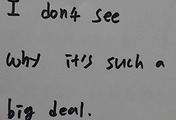 I don4 see
why it's such a
big deal.